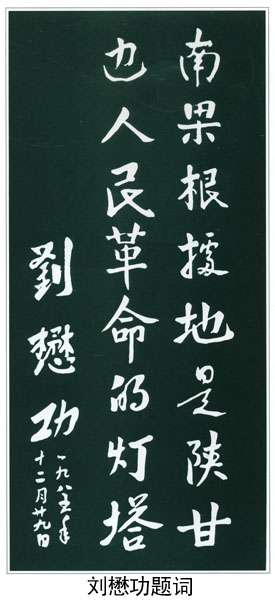 南梁根據地是陕甘
边人民革命的灯塔
劉懋功
一九八五年
十二月廿九日
刘懋功题词